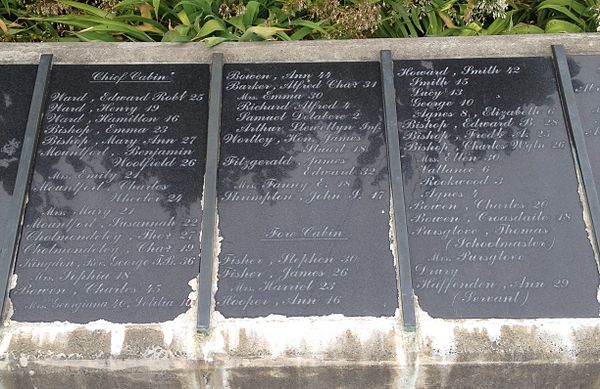 Chief Cabin
Ward, Edward Robt 25
Ward, Henry 19
Ward, Hamilton 16
Bishop, Emma 23
Bishop, Mary Ann 27
Mountfort, Benjamin
Woolfield 26
Mrs. Emily 21
Mountfort, Charles
Wheeler 24
Mrs. Mary 21
Mountfort, Susannah 22
Cholmondeley, Thos 27
Cholmondeley, Chas 19
Kingdon, Rev. George T.B. 36
Mrs. Sophia 18
Bowen, Charles 45
Mrs. Georgiana 46, Letitia
Bowen, Ann 44
Barker, Alfred Chas 31
Mrs. Emma 30
Richard Alfred 4
Samuel Delabere 2
Arthur Llewellyn Inf.
Wortley, Hon. James
Stuart 18
Fitzgerald James
Edward 32
Mrs. Fanny E. 18
Shrimpton, John I. 17
Fore Cabin
Fisher, Stephen 30
Fisher, James 26
Mrs. Harriet 23
Hooper, Ann 16
Howard, Smith 42
Smith 15
Lucy 13
George 10
Agnes 8, Elizabeth 6
Bishop, Edward B. 28
Bishop, Fredk A. 23
Bishop, Charles Wgln 26
Mrs. Ellen 30
Vallance 6
Rockwood 3
Ayna 4
Bowen, Charles 20
Bowen, Croasdaile 18
Pursglove, Thomas
(Schoolmaster)
Mrs. Pursglove
Drury
Haffenden, Ann 29
(Servant)